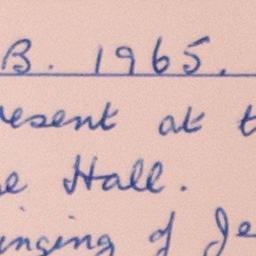 B. 1965.
resent at t
e Hall.
inging of Je